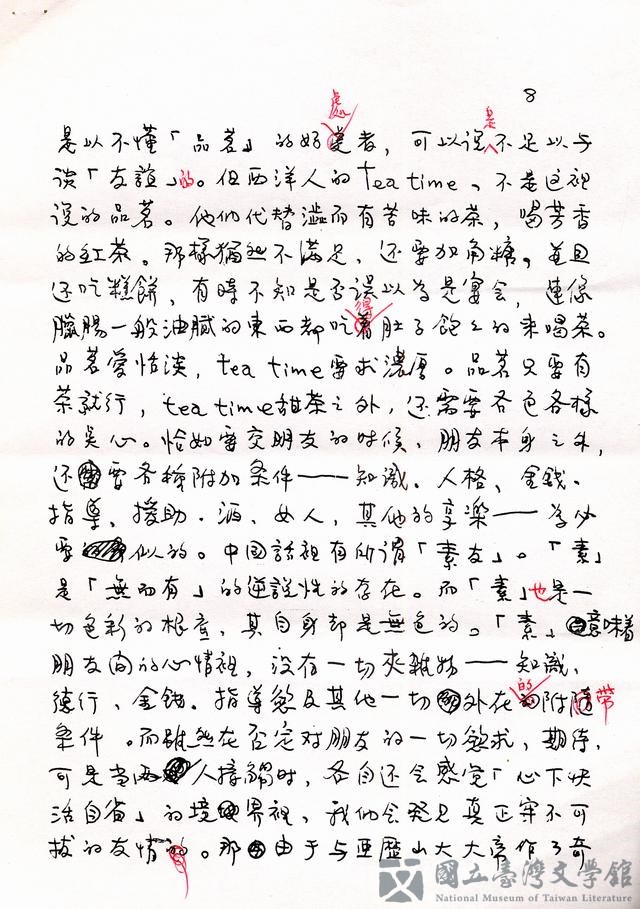 8
是以不懂「品茗」的好處者，可以說是不足以与
談「友誼」的。但西洋人的Tea time、不是这裡
說的品茗。他们代替澀而有苦味的茶，喝芳香
的紅茶。那樣猶然不滿足，还要加角糖。並且
还吃糕餅，有時不知是否誤以為是宴会，連像
臘腸一般油膩的東西都吃得肚子飽飽的来喝茶。
品茗爱恬淡，tea time要求濃厚。品茗只要有
茶就行，tea time甜茶之外，还需要各色各樣
的点心。恰如要交朋友的时候、朋友本身之外，
还要各種附加条件——知識、人格、金錢、
指導、援助、酒、女人，其他的享樂——為必
要似的。中国話裡有所謂「素友」。「素」
是「無而有」的逆說性的存在。而「素」也是一
切色彩的根底，其自身却是無色的。「素」意味着
朋友间的心情裡，没有一切夾雜物——知識、
德行、金錢、指導慾及其他一切外在的附帶
条件。而雖然在否定对朋友的一切慾求，期待，
可是当两人接觸时，各自还会感覚「心下快
活自省」的境界裡，我们会発見真正牢不可
拔的友情。那由于与亜歷山大大帝作了奇
國立臺灣文學館
National Museum of Taiwan Literature